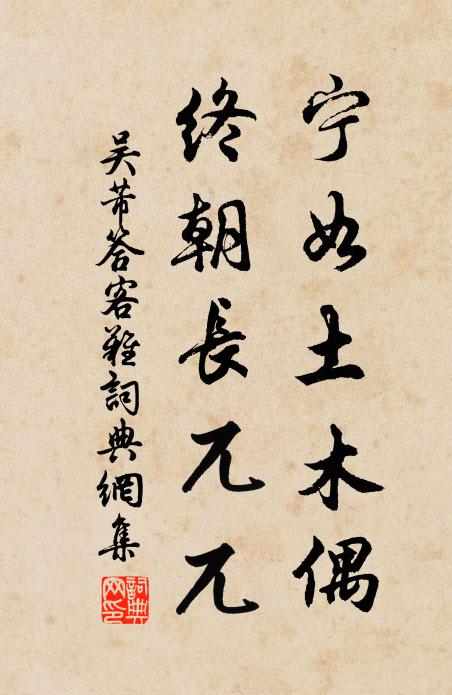 宁如土木偶
终朝長兀兀
吴芾答客難詞典網集
詞典網印